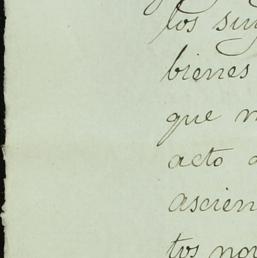 los suy
bienes
que n
acto
ascien
tos nov